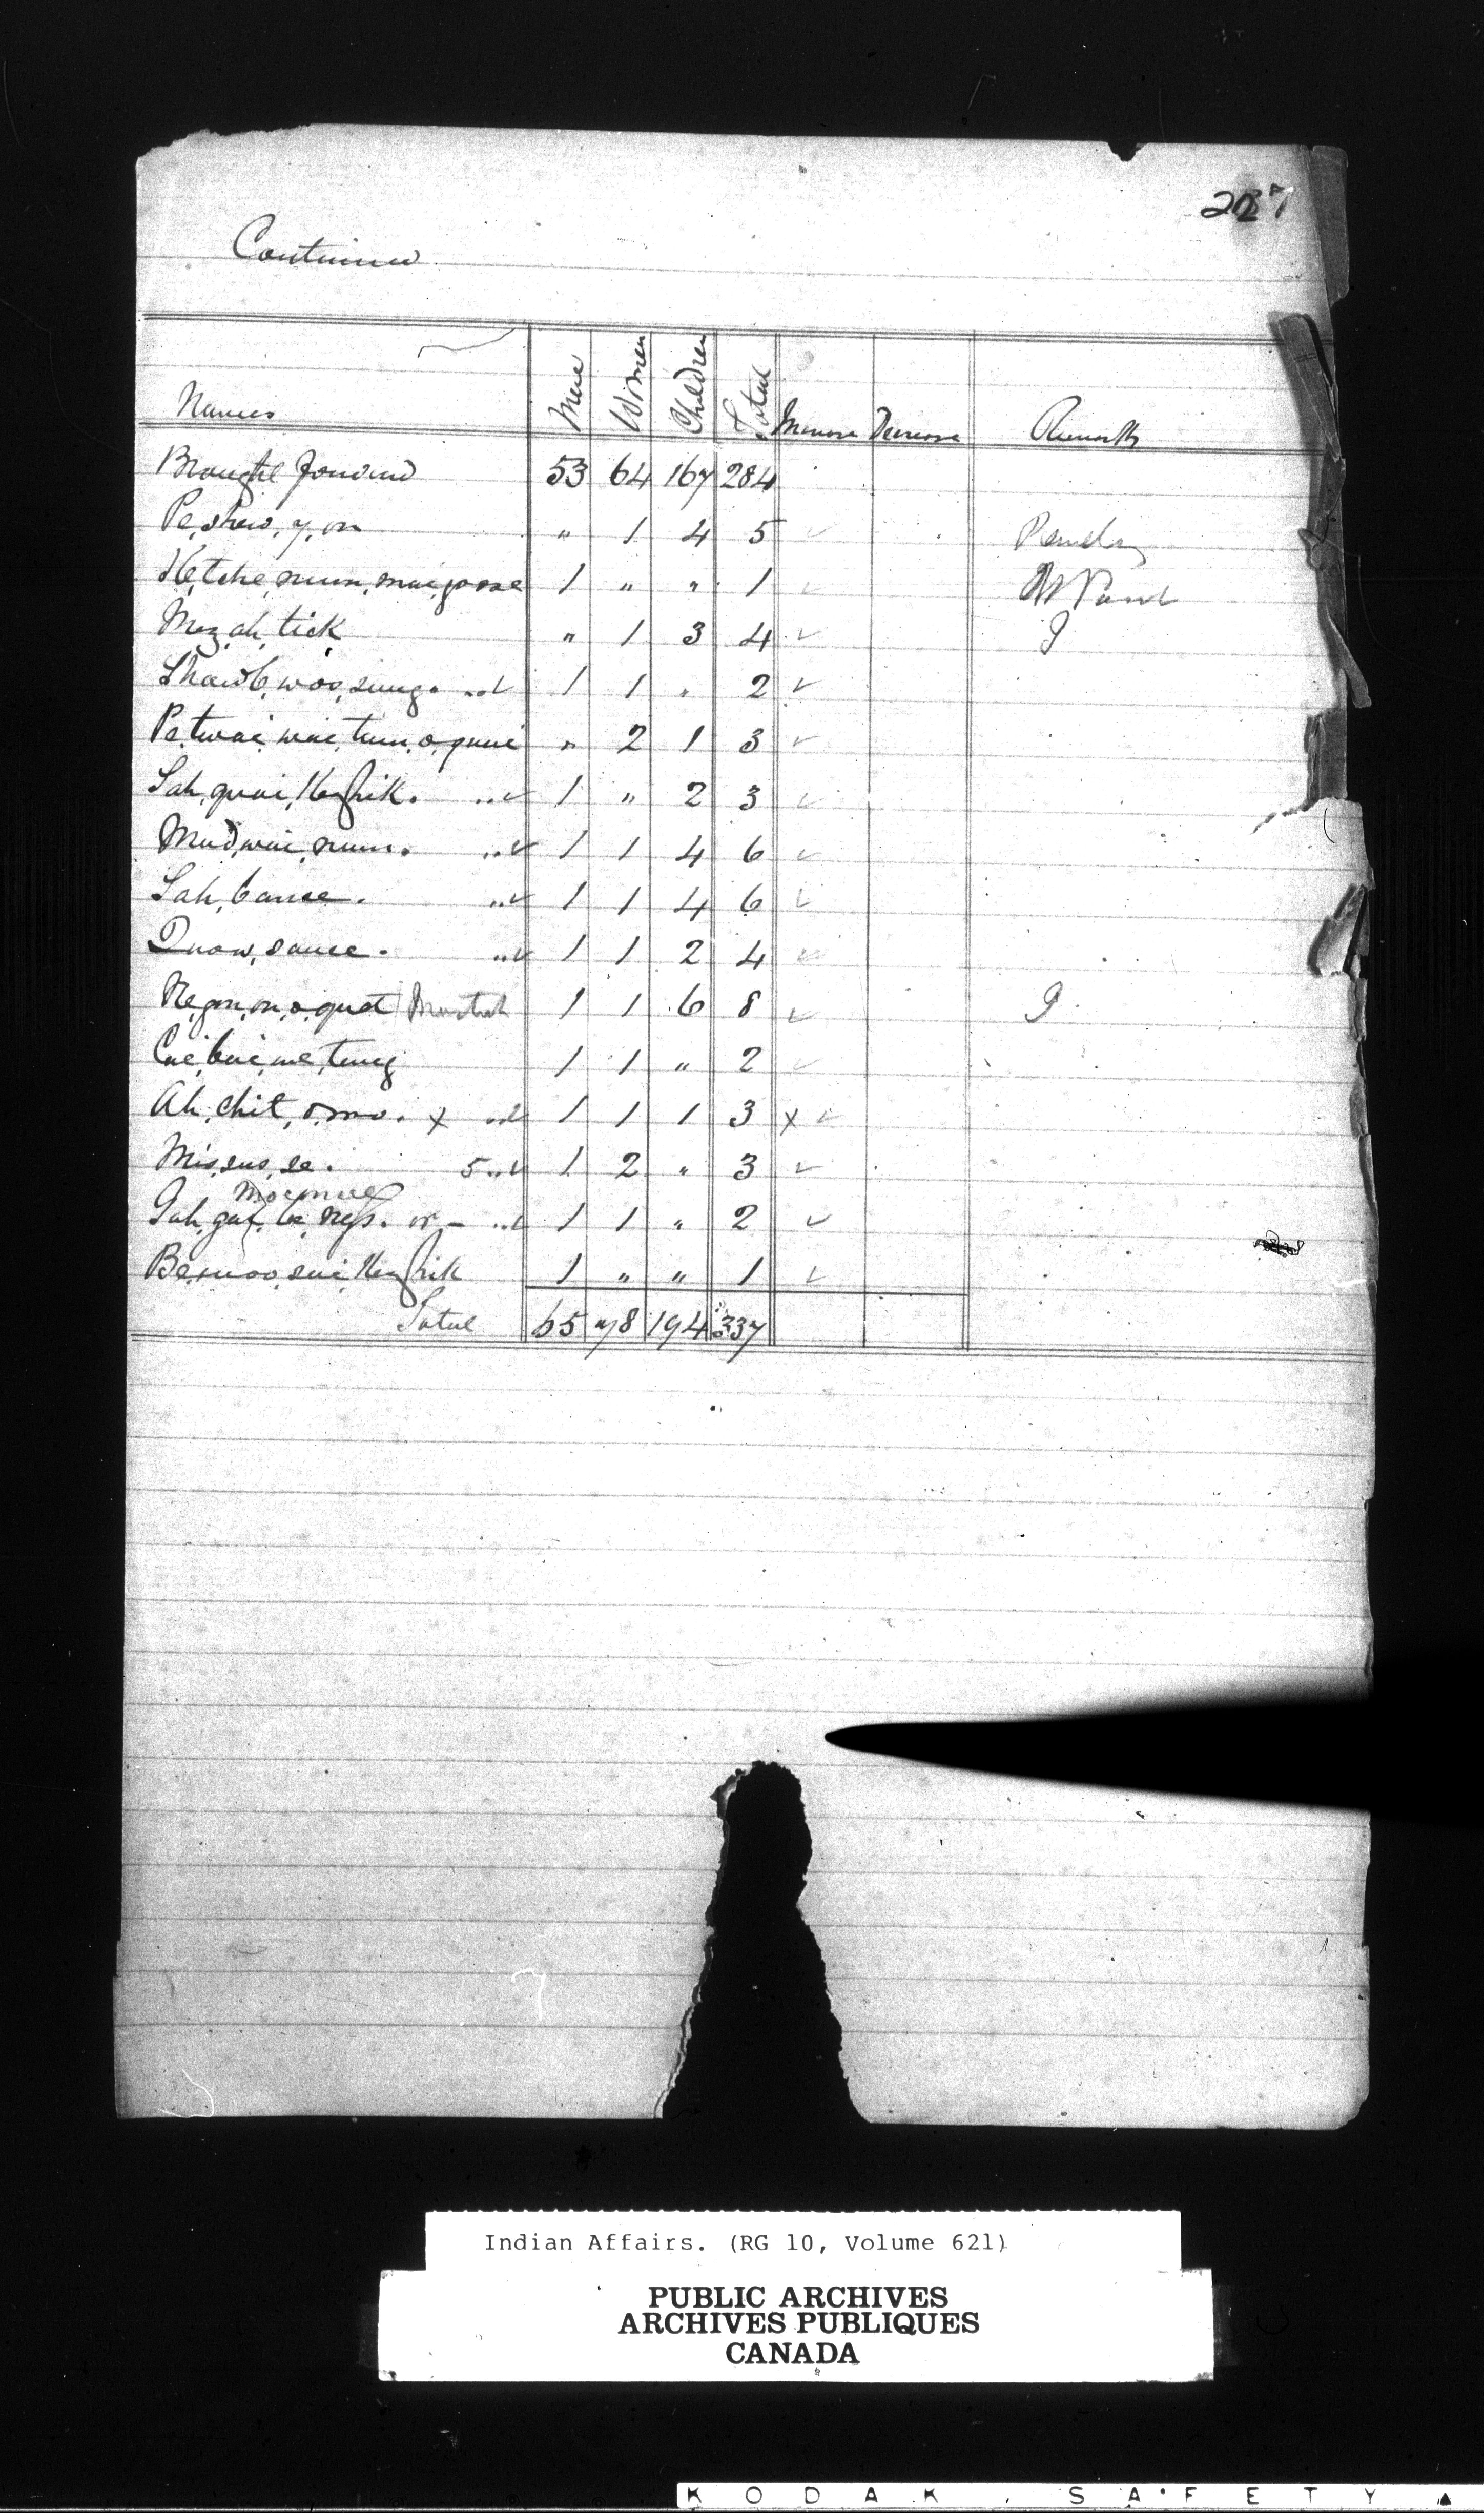 Continued
Names Men Women Children Total Increase Decrease Remarks
Brought forward 53 64 167 284
Pe,shew,y,on " 1 4 5 ✓
Ketche,num,mai,goose 1 " " 1 ✓
Mez,ah,tick " 1 3 4 ✓
Shawb,wos,sung. ..✓ 1 1 " 2 ✓
Pe,twai,wai,tum,o,quai " 2 1 3 ✓
Sah,quai,Keshik. ..✓ 1 " 2 3 ✓
Mudwai,num. ..✓ 1 1 4 6 ✓
Sah,bance. ..✓ 1 1 4 6 ✓
Quow,sance. ..✓ 1 1 2 4 ✓
Ne,gon,on,o,quot 1 1 6 8 ✓
Cai,bai,me,tung 1 1 " 2 ✓
Ah,chit,o,mo. x ..✓ 1 1 1 3 x ✓
Mis,sus,se. 5..✓ 1 2 " 3 ✓
or - ..✓ 1 1 " 2 ✓
Be,moo,sai,Keshik 1 " " 1 ✓
Total 65 78 194 337
Indian Affairs. (RG 10, Volume 621)
PUBLIC ARCHIVES
ARCHIVES PUBLIQUES
CANADA
KODAK SAFETY